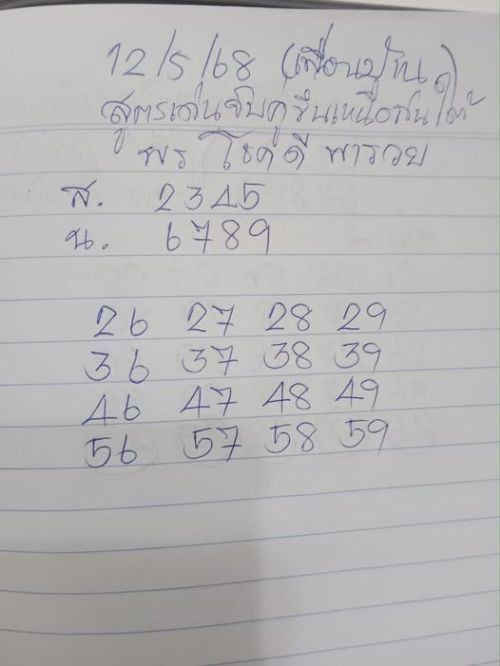 12/5/68 (เพื่อนปูขน)
สูตรเด่นจับคู่ขึ้นเหนือล่นใต้
พร โชคดี พารวย
ส. 2345
น. 6789
26 27 28 29
36 37 38 39
46 47 48 49
56 57 58 59